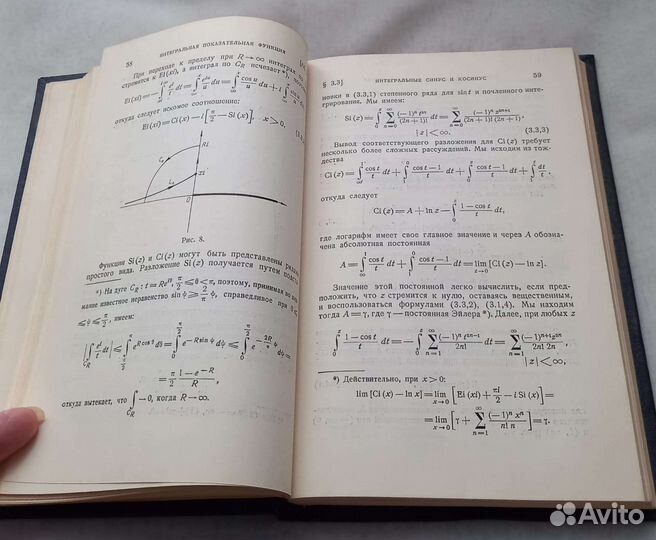 58 ИНТЕГРАЛЬНАЯ ПОКАЗАТЕЛЬНАЯ ФУНКЦИЯ
При переходе к пределу при R → ∞ интеграл по
стремится к Ei(xi), а интеграл по C_R исчезает*),
Ei(xi) = −∫ e^t/t dt = ∫ e^{iu}/u du = ∫ cos u/u du + i ∫
откуда следует искомое соотношение:
Ei(xi) = Ci(x) − i[π/2 − Si(x)], x > 0.
Ri
xi
Рис. 8.
Функции Si(z) и Ci(z) могут быть представлены рядами
простого вида. Разложение Si(z) получается путем
*) На дуге C_R: t = Re^{iθ}, π/2 ≤ θ < π, поэтому, принимая во
мание известное неравенство sin ψ ≥ 2/π ψ, справедливое при 0 ≤
≤ ψ ≤ π/2, имеем:
|∫_{C_R} e^t/t dt| ≤ ∫_{π/2}^{π} e^{R cos θ} dθ = ∫_0^{π/2} e^{−R sin ψ} dψ ≤ ∫_0^{π/2} e^{−2R/π ψ} dψ =
= π/2 (1 − e^{−R})/R,
откуда вытекает, что ∫_{C_R} → 0, когда R → ∞.
§ 3.3] ИНТЕГРАЛЬНЫЕ СИНУС И КОСИНУС 59
новки в (3.3.1) степенного ряда для sin t и почленного инте-
грирования. Мы имеем:
Si(z) = ∫_0^z ∑_{n=0}^∞ (−1)^n t^{2n}/(2n+1)! dt = ∑_{n=0}^∞ (−1)^n z^{2n+1}/((2n+1)! (2n+1)),
|z| < ∞. (3.3.3)
Вывод соответствующего разложения для Ci(z) требует
несколько более сложных рассуждений. Мы исходим из тож-
дества
Ci(z) = ∫_∞^1 cos t/t dt + ∫_1^0 (cos t − 1)/t dt + ∫_0^z (cos t − 1)/t dt + ∫_1^z dt/t,
откуда следует
Ci(z) = A + ln z − ∫_0^z (1 − cos t)/t dt,
где логарифм имеет свое главное значение и через A обозна-
чена абсолютная постоянная
A = ∫_∞^1 cos t/t dt + ∫_0^1 (1 − cos t)/t dt = lim_{z→0} [Ci(z) − ln z].
Значение этой постоянной легко вычислить, если пред-
положить, что z стремится к нулю, оставаясь вещественным,
и воспользоваться формулами (3.3.2), (3.1.4). Мы находим
тогда A = γ, где γ — постоянная Эйлера*). Далее, при любых z
∫_0^z (1 − cos t)/t dt = −∫_0^z ∑_{n=1}^∞ (−1)^n t^{2n−1}/2n! dt = ∑_{n=1}^∞ (−1)^{n+1} z^{2n}/(2n! 2n),
|z| < ∞,
*) Действительно, при x > 0:
lim [Ci(x) − ln x] = lim_{x→0} [Ei(xi) + πi/2 − i Si(x)] =
= lim_{x→0} [γ + ∑_{n=1}^∞ (−1)^n x^n/(n! n)] = γ.
Avito